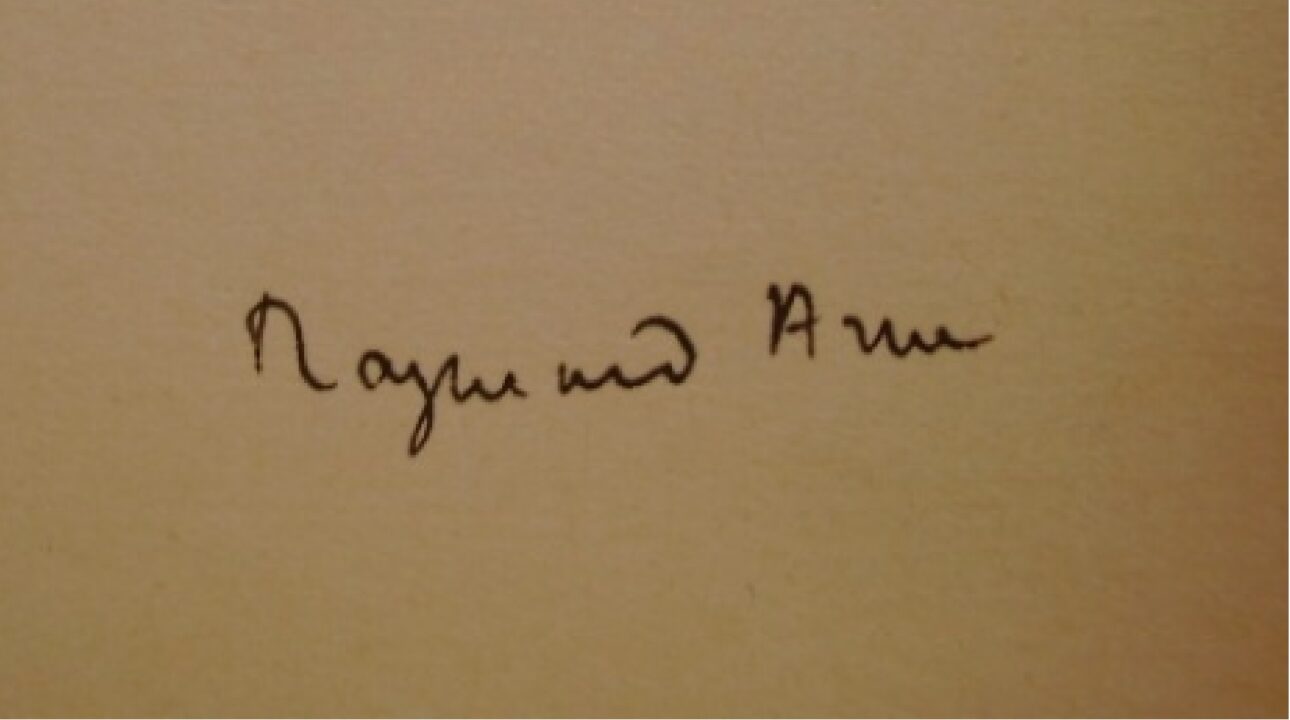 Raymond Aron